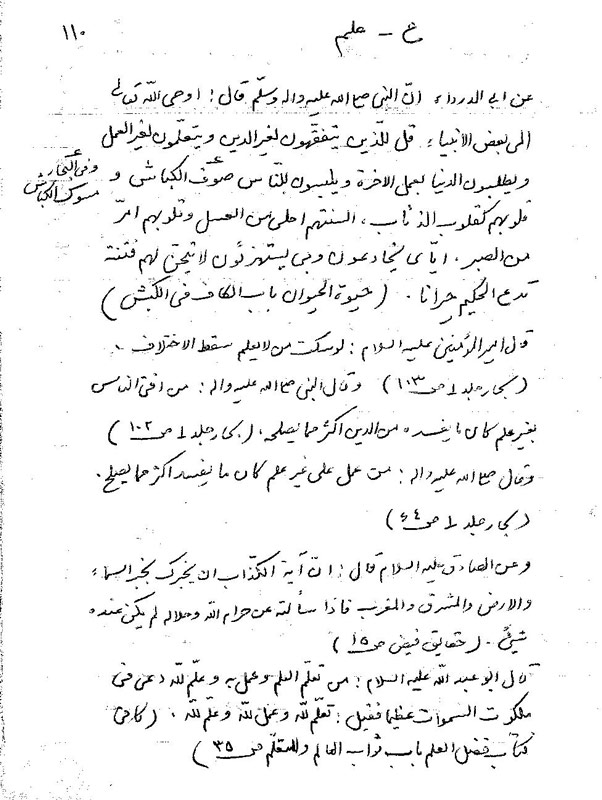 ١١٠
ع - علم
عن ابى الدرداء انّ النبى صلى الله عليه واله وسلّم قال: اوحى الله تعالى
الى بعض الانبياء قل للّذين يتفقّهون لغير الدين ويتعلّمون لغير العمل
ويطلبون الدنيا بعمل الاخرة ويلبسون للنّاس صوف الكباش و
قلوبهم كقلوب الذئاب، السنتهم احلى من العسل وقلوبهم امرّ
من الصبر، ايّاى يخادعون وبى يستهزئون لاتيحنّ لهم فتنة
تدع الحكيم حيرانا. (حيوة الحيوان باب الكاف فى الكبش)
وفى البحار
مسوك الكباش
قال امير المؤمنين عليه السلام: لو سكت من لا يعلم سقط الاختلاف.
(بحار جلد ١ ص ١٠٣) وقال النبى صلى الله عليه واله: من افتى الناس
بغير علم كان ما يفسده من الدين اكثر مما يصلحه. (بحار جلد ١ ص ١٠٢)
وقال صلى الله عليه واله: من عمل على غير علم كان ما يفسد اكثر مما يصلح.
(بحار جلد ١ ص ٦٤)
وعن الصادق عليه السلام قال: انّ آية الكذّاب ان يخبرك بخبر السماء
والارض والمشرق والمغرب فاذا سألته عن حرام الله وحلاله لم يكن عنده
شيئ. (حقايق فيض ص ١٥)
قال ابو عبد الله عليه السلام: من تعلّم العلم وعمل به وعلّم لله دعى فى
ملكوت السموات عظيما فقيل: تعلّم لله وعمل لله وعلّم لله. (كافى
كتاب فضل العلم باب ثواب العالم والمتعلّم ص ٣٥)